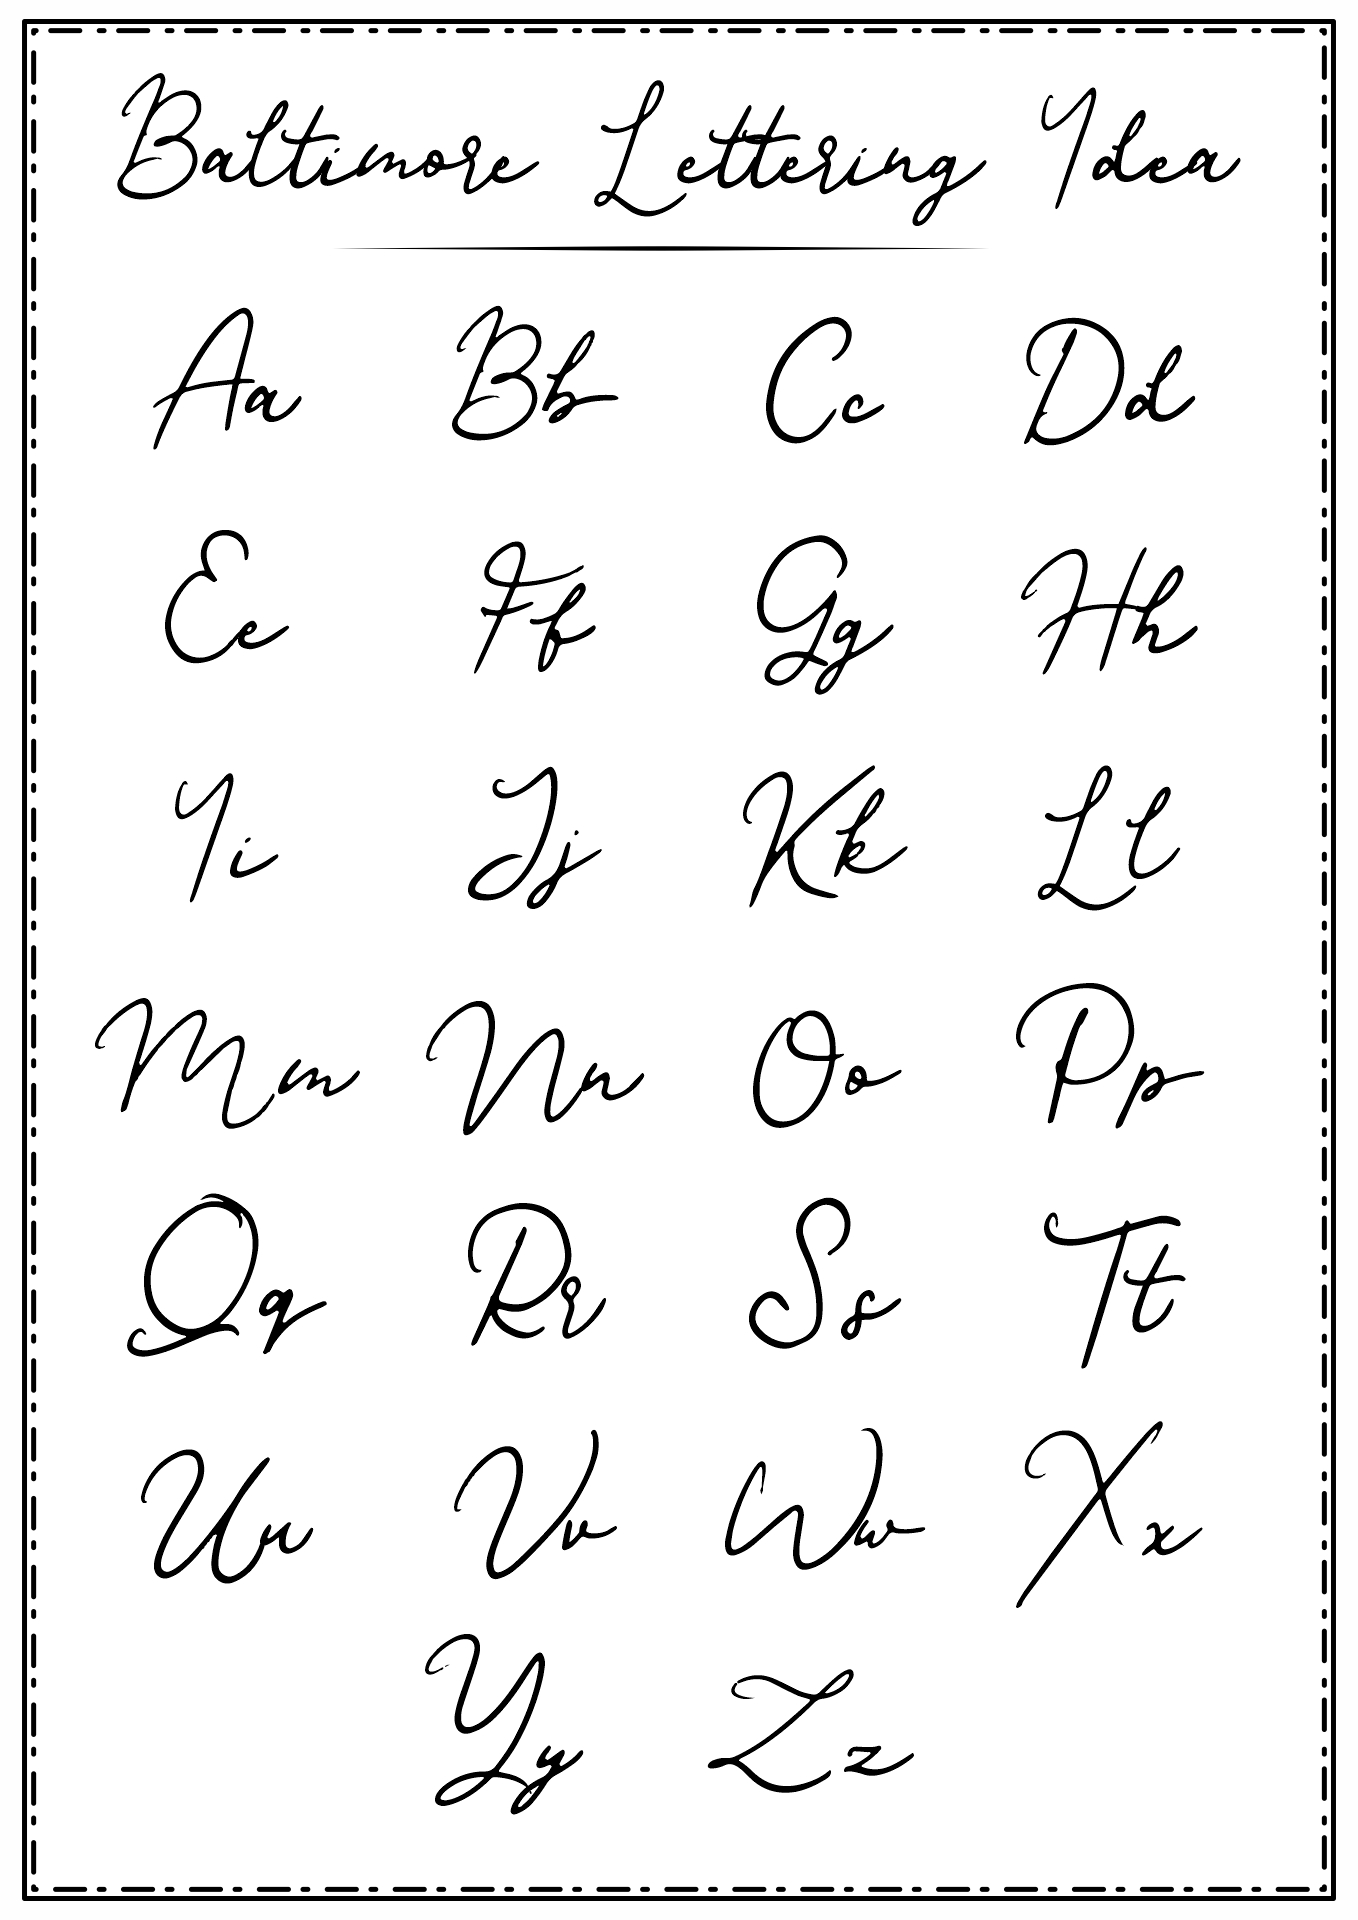 Baltimore Lettering Idea
Aa Bb Cc Dd
Ee Ff Gg Hh
Ii Jj Kk Ll
Mm Nn Oo Pp
Qq Rr Ss Tt
Uu Vv Ww Xx
Yy Zz